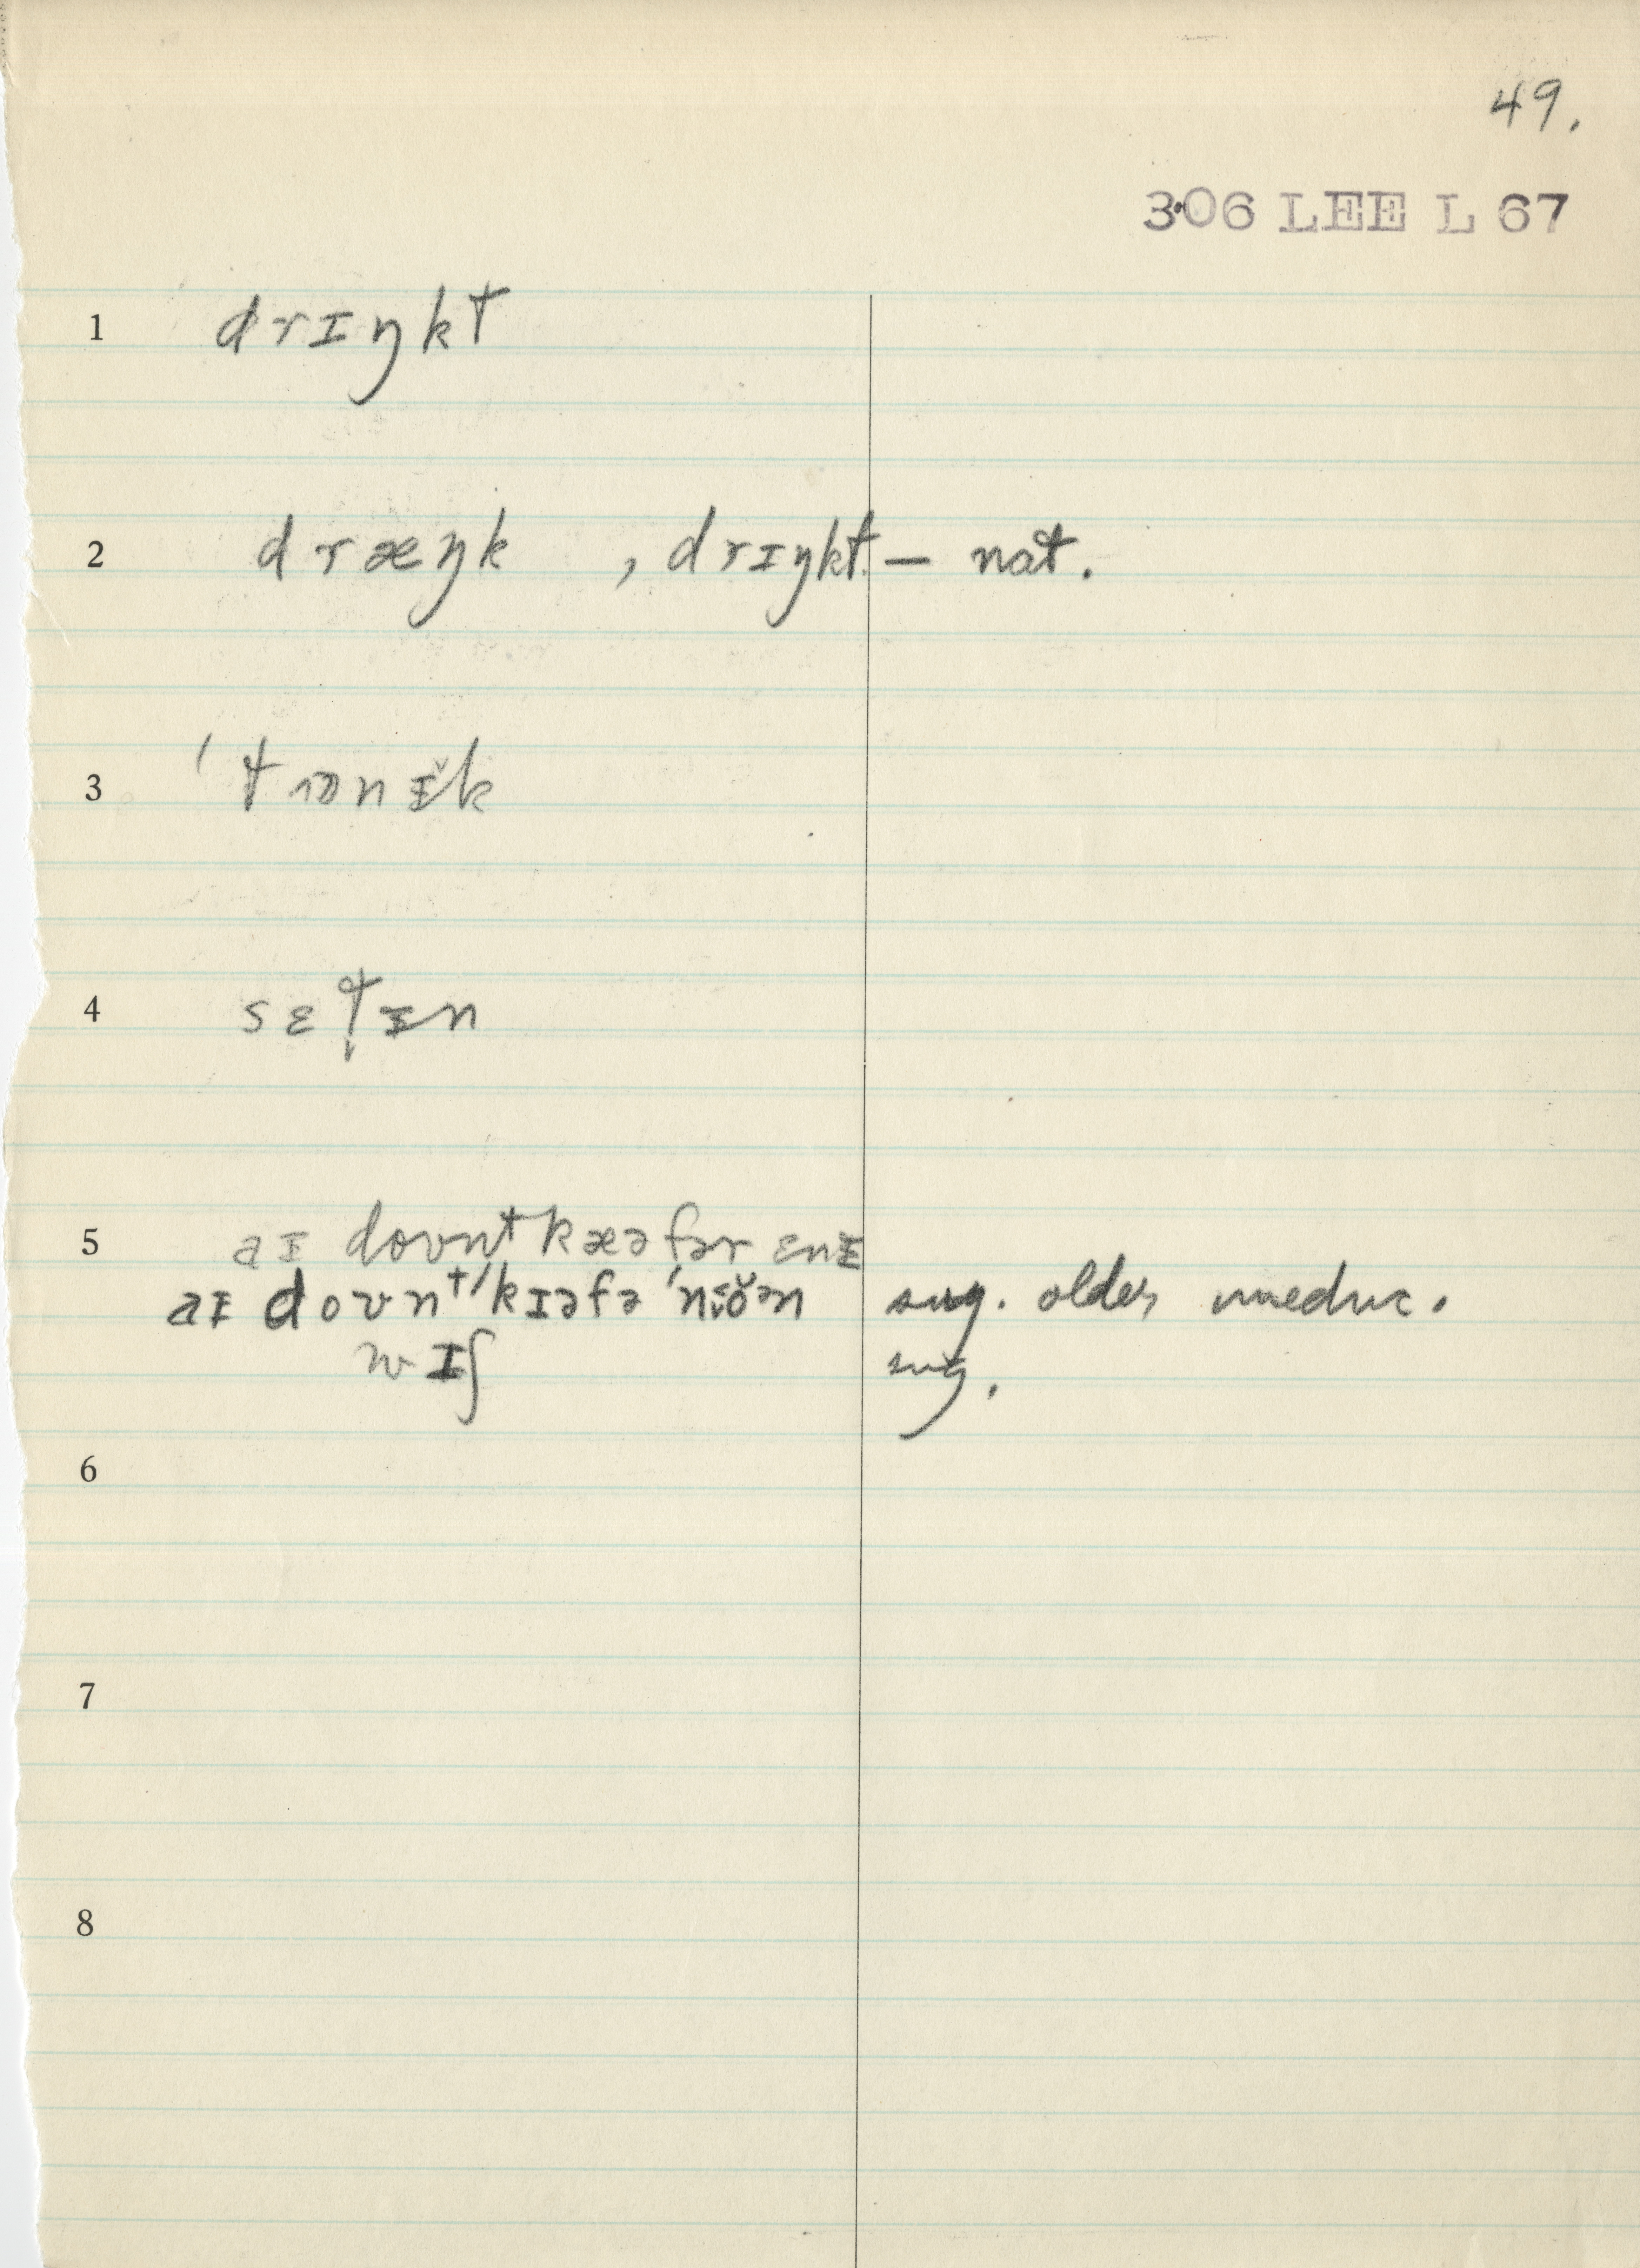 49.
306 LEE L 67
1 drɪŋkt
2 dræŋk , drɪŋkt – nat.
3 ˈtɒnɪ̆k
4 sɛt̬ɪn
5 aɪ doʊnt kæə fər ɛnɪ
aɪ doʊntˈkɪəfəˈ sug. older, uneduc.
wɪʃ sug.
6
7
8